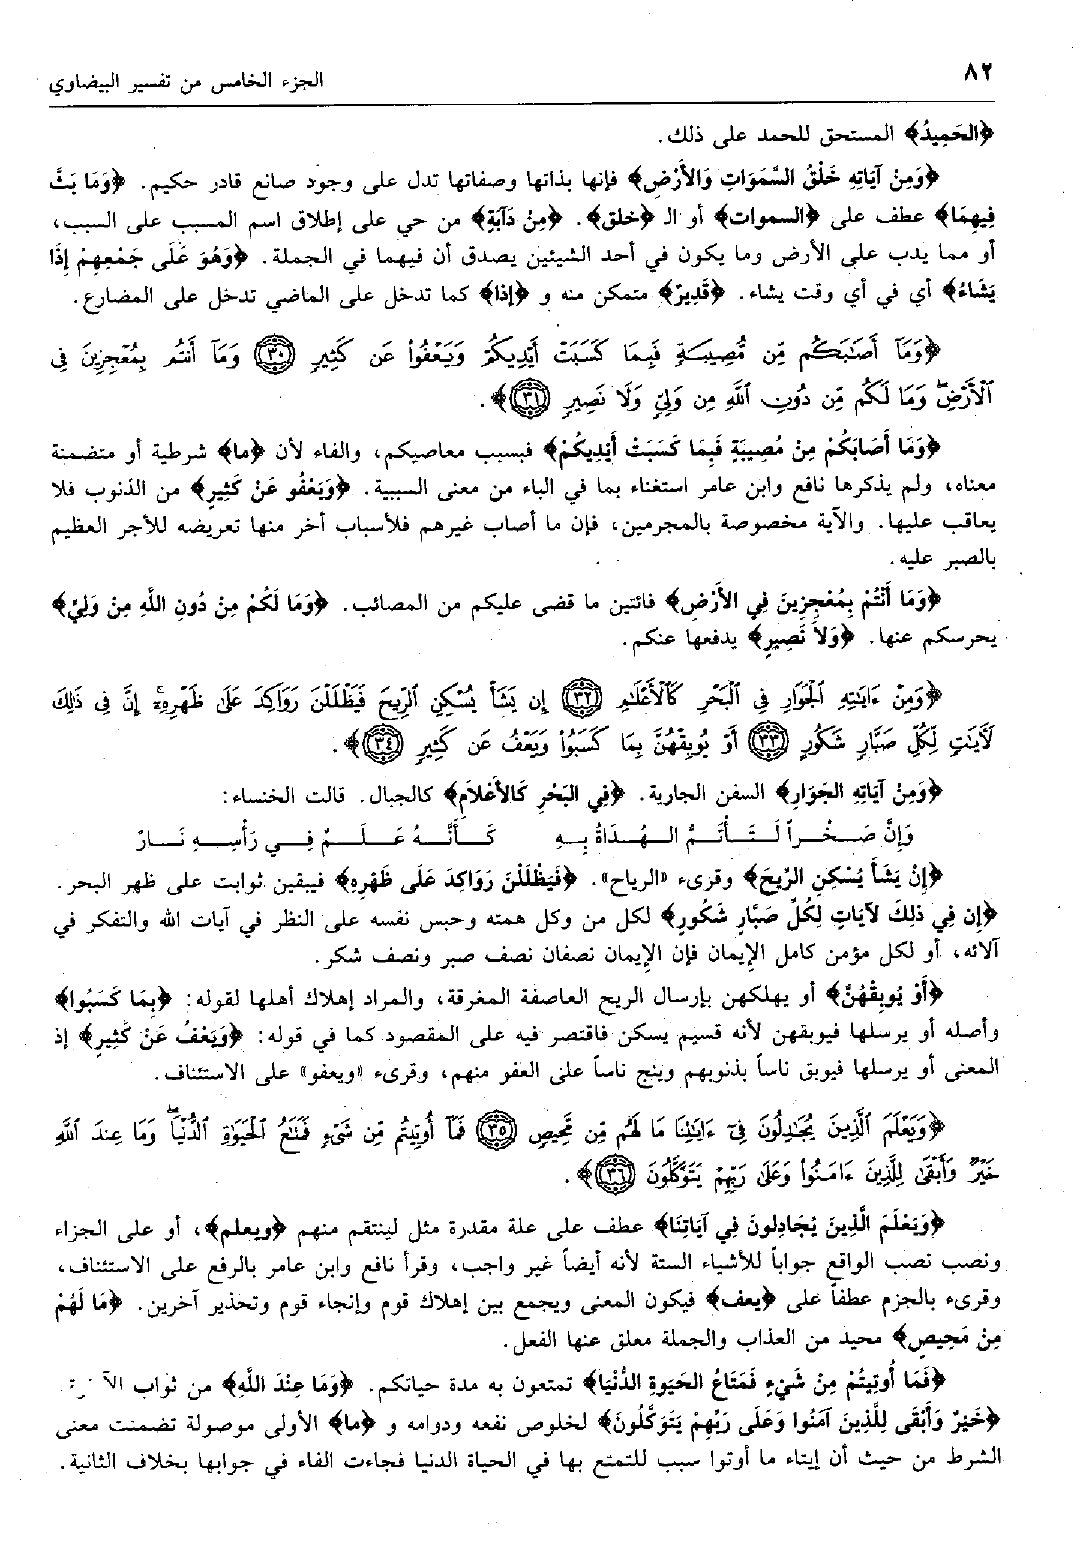 ٨٢
الجزء الخامس من تفسير البيضاوي
﴿الحَمِيدُ﴾ المستحق للحمد على ذلك.
﴿وَمِنْ آيَاتِهِ خَلْقُ السَّمَوَاتِ وَالأَرْضِ﴾ فإنها بذاتها وصفاتها تدل على وجود صانع قادر حكيم. ﴿وَمَا بَثَّ
فِيهِمَا﴾ عطف على ﴿السموات﴾ أو الـ ﴿خلق﴾. ﴿مِنْ دَابَّةٍ﴾ من حي على إطلاق اسم المسبب على السبب،
أو مما يدب على الأرض وما يكون في أحد الشيئين يصدق أن فيهما في الجملة. ﴿وَهُوَ عَلَى جَمْعِهِمْ إِذَا
يَشَاءُ﴾ أي في أي وقت يشاء. ﴿قَدِيرٌ﴾ متمكن منه و ﴿إذا﴾ كما تدخل على الماضي تدخل على المضارع.
﴿وَمَآ أَصَٰبَكُم مِّن مُّصِيبَةٍ فَبِمَا كَسَبَتْ أَيْدِيكُمْ وَيَعْفُوا۟ عَن كَثِيرٍ ﴿٣٠﴾ وَمَآ أَنتُم بِمُعْجِزِينَ فِى
ٱلْأَرْضِ ۖ وَمَا لَكُم مِّن دُونِ ٱللَّهِ مِن وَلِىٍّ وَلَا نَصِيرٍ ﴿٣١﴾﴾.
﴿وَمَا أَصَابَكُمْ مِنْ مُصِيبَةٍ فَبِمَا كَسَبَتْ أَيْدِيكُمْ﴾ فبسبب معاصيكم، والفاء لأن ﴿ما﴾ شرطية أو متضمنة
معناه، ولم يذكرها نافع وابن عامر استغناء بما في الباء من معنى السببية. ﴿وَيَعْفُو عَنْ كَثِيرٍ﴾ من الذنوب فلا
يعاقب عليها. والآية مخصوصة بالمجرمين، فإن ما أصاب غيرهم فلأسباب أخر منها تعريضه للأجر العظيم
بالصبر عليه.
﴿وَمَا أَنْتُمْ بِمُعْجِزِينَ فِي الأَرْضِ﴾ فائتين ما قضى عليكم من المصائب. ﴿وَمَا لَكُمْ مِنْ دُونِ اللَّهِ مِنْ وَلِيٍّ﴾
يحرسكم عنها. ﴿وَلاَ نَصِيرٍ﴾ يدفعها عنكم.
﴿وَمِنْ ءَايَٰتِهِ ٱلْجَوَارِ فِى ٱلْبَحْرِ كَٱلْأَعْلَٰمِ ﴿٣٢﴾ إِن يَشَأْ يُسْكِنِ ٱلرِّيحَ فَيَظْلَلْنَ رَوَاكِدَ عَلَىٰ ظَهْرِهِۦٓ ۚ إِنَّ فِى ذَٰلِكَ
لَءَايَٰتٍ لِّكُلِّ صَبَّارٍ شَكُورٍ ﴿٣٣﴾ أَوْ يُوبِقْهُنَّ بِمَا كَسَبُوا۟ وَيَعْفُ عَن كَثِيرٍ ﴿٣٤﴾﴾.
﴿وَمِنْ آيَاتِهِ الجَوَارِ﴾ السفن الجارية. ﴿فِي البَحْرِ كَالأَعْلاَمِ﴾ كالجبال. قالت الخنساء:
وَإِنَّ صَخْراً لَتَأْتَمُّ الهُدَاةُ بِهِ كَأَنَّهُ عَلَمٌ فِي رَأْسِهِ نَارُ
﴿إِنْ يَشَأْ يُسْكِنِ الرِّيحَ﴾ وقرىء «الرياح». ﴿فَيَظْلَلْنَ رَوَاكِدَ عَلَى ظَهْرِهِ﴾ فيبقين ثوابت على ظهر البحر.
﴿إِن فِي ذَلِكَ لآيَاتٍ لِكُلِّ صَبَّارٍ شَكُورٍ﴾ لكل من وكل همته وحبس نفسه على النظر في آيات الله والتفكر في
آلائه، أو لكل مؤمن كامل الإيمان فإن الإيمان نصفان نصف صبر ونصف شكر.
﴿أَوْ يُوبِقْهُنَّ﴾ أو يهلكهن بإرسال الريح العاصفة المغرقة، والمراد إهلاك أهلها لقوله: ﴿بِمَا كَسَبُوا﴾
وأصله أو يرسلها فيوبقهن لأنه قسيم يسكن فاقتصر فيه على المقصود كما في قوله: ﴿وَيَعْفُ عَنْ كَثِيرٍ﴾ إذ
المعنى أو يرسلها فيوبق ناساً بذنوبهم وينج ناساً على العفو منهم، وقرىء «ويعفو» على الاستئناف.
﴿وَيَعْلَمَ ٱلَّذِينَ يُجَٰدِلُونَ فِىٓ ءَايَٰتِنَا مَا لَهُم مِّن مَّحِيصٍ ﴿٣٥﴾ فَمَآ أُوتِيتُم مِّن شَىْءٍ فَمَتَٰعُ ٱلْحَيَوٰةِ ٱلدُّنْيَا ۖ وَمَا عِندَ ٱللَّهِ
خَيْرٌ وَأَبْقَىٰ لِلَّذِينَ ءَامَنُوا۟ وَعَلَىٰ رَبِّهِمْ يَتَوَكَّلُونَ ﴿٣٦﴾﴾.
﴿وَيَعْلَمَ الَّذِينَ يُجَادِلُونَ فِي آيَاتِنَا﴾ عطف على علة مقدرة مثل لينتقم منهم ﴿ويعلم﴾، أو على الجزاء
ونصب نصب الواقع جواباً للأشياء الستة لأنه أيضاً غير واجب، وقرأ نافع وابن عامر بالرفع على الاستئناف،
وقرىء بالجزم عطفاً على ﴿يعف﴾ فيكون المعنى ويجمع بين إهلاك قوم وإنجاء قوم وتحذير آخرين. ﴿مَا لَهُمْ
مِنْ مَحِيصٍ﴾ محيد من العذاب والجملة معلق عنها الفعل.
﴿فَمَا أُوتِيتُمْ مِنْ شَيْءٍ فَمَتَاعُ الحَيَوةِ الدُّنْيَا﴾ تمتعون به مدة حياتكم. ﴿وَمَا عِنْدَ اللَّهِ﴾ من ثواب
﴿خَيْرٌ وَأَبْقَى لِلَّذِينَ آمَنُوا وَعَلَى رَبِّهِمْ يَتَوَكَّلُونَ﴾ لخلوص نفعه ودوامه و ﴿ما﴾ الأولى موصولة تضمنت معنى
الشرط من حيث أن إيتاء ما أوتوا سبب للتمتع بها في الحياة الدنيا فجاءت الفاء في جوابها بخلاف الثانية.